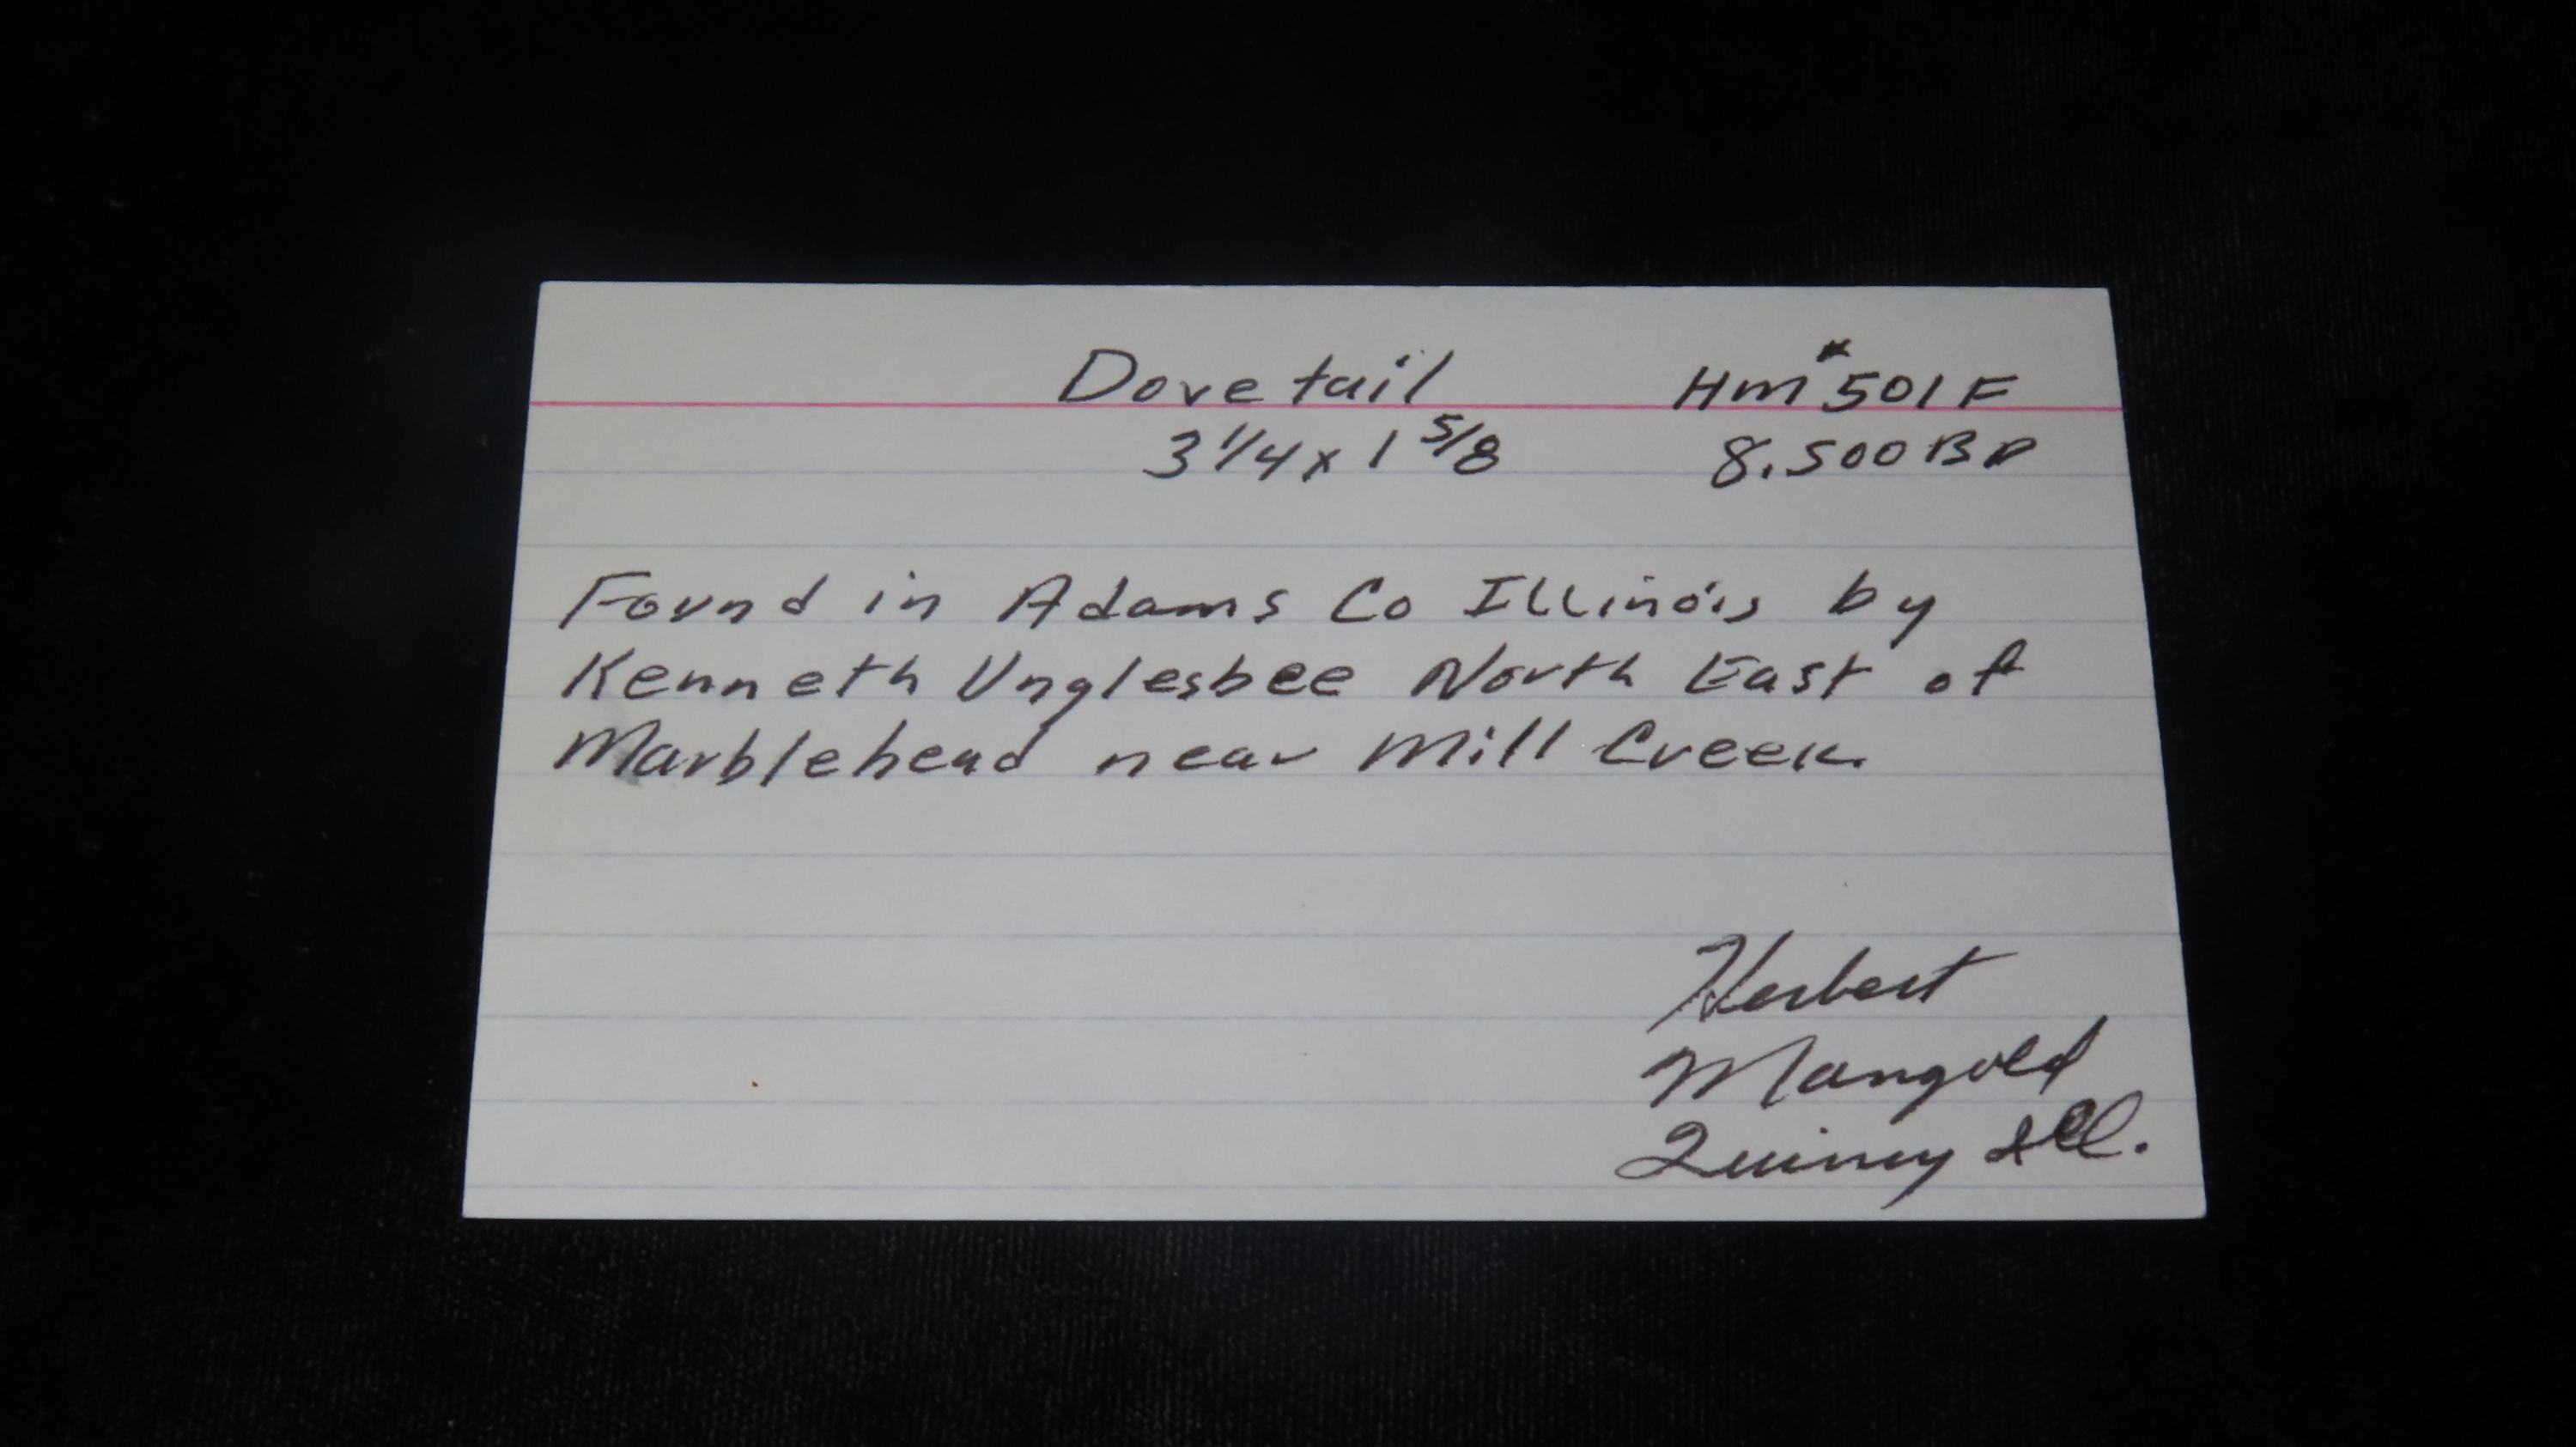 Dovetail Hm #501F
3 1/4 x 1 5/8 8,500 BP
Found in Adams Co Illinois by
Kenneth Unglesbee North East of
Marblehead near Mill Creek.
Herbert
Mangold
Quincy Ill.